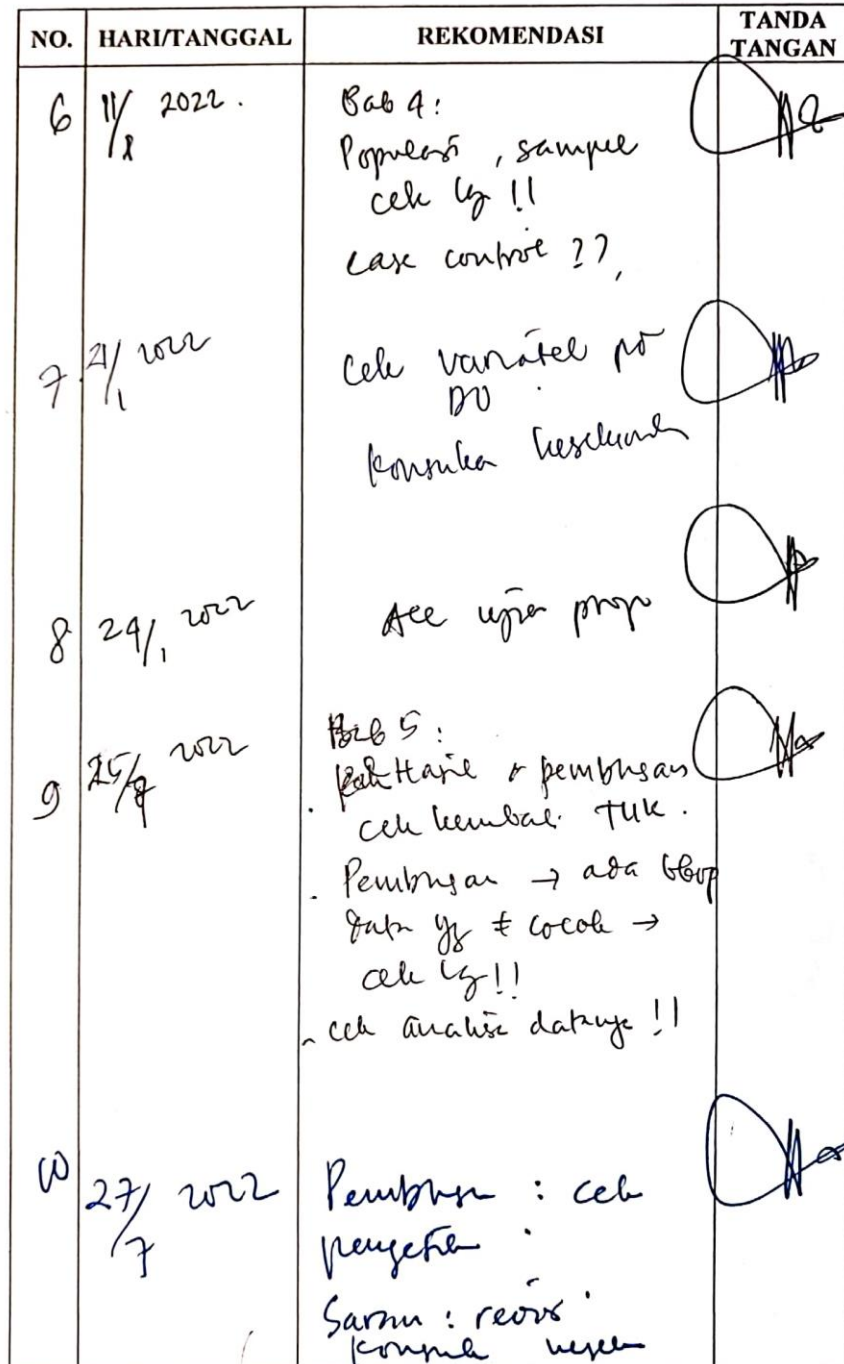 NO. HARI/TANGGAL REKOMENDASI TANDA TANGAN
6 11/1 2022. Bab 4:
Populasi, sampel
cek lg !!
case control ??
7 21/1 2022 Cek variabel
DO
konsul
8 24/1 2022 Acc ujian prop
9 25/7 2022 Bab 5:
Hasil & pembhsan
cek kembali TUK.
Pembhsan → ada bbrp
data yg ≠ cocok →
cek lg!!
cek analisa datanya !!
10 27/7 2022 Pembhsn : cek
pengetikan
Saran : revisi
konsul